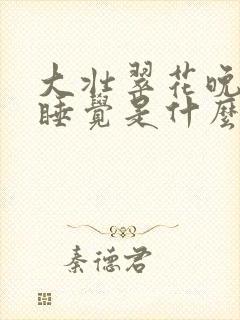 大壮翠花晚
睡覺是什麼
秦德君